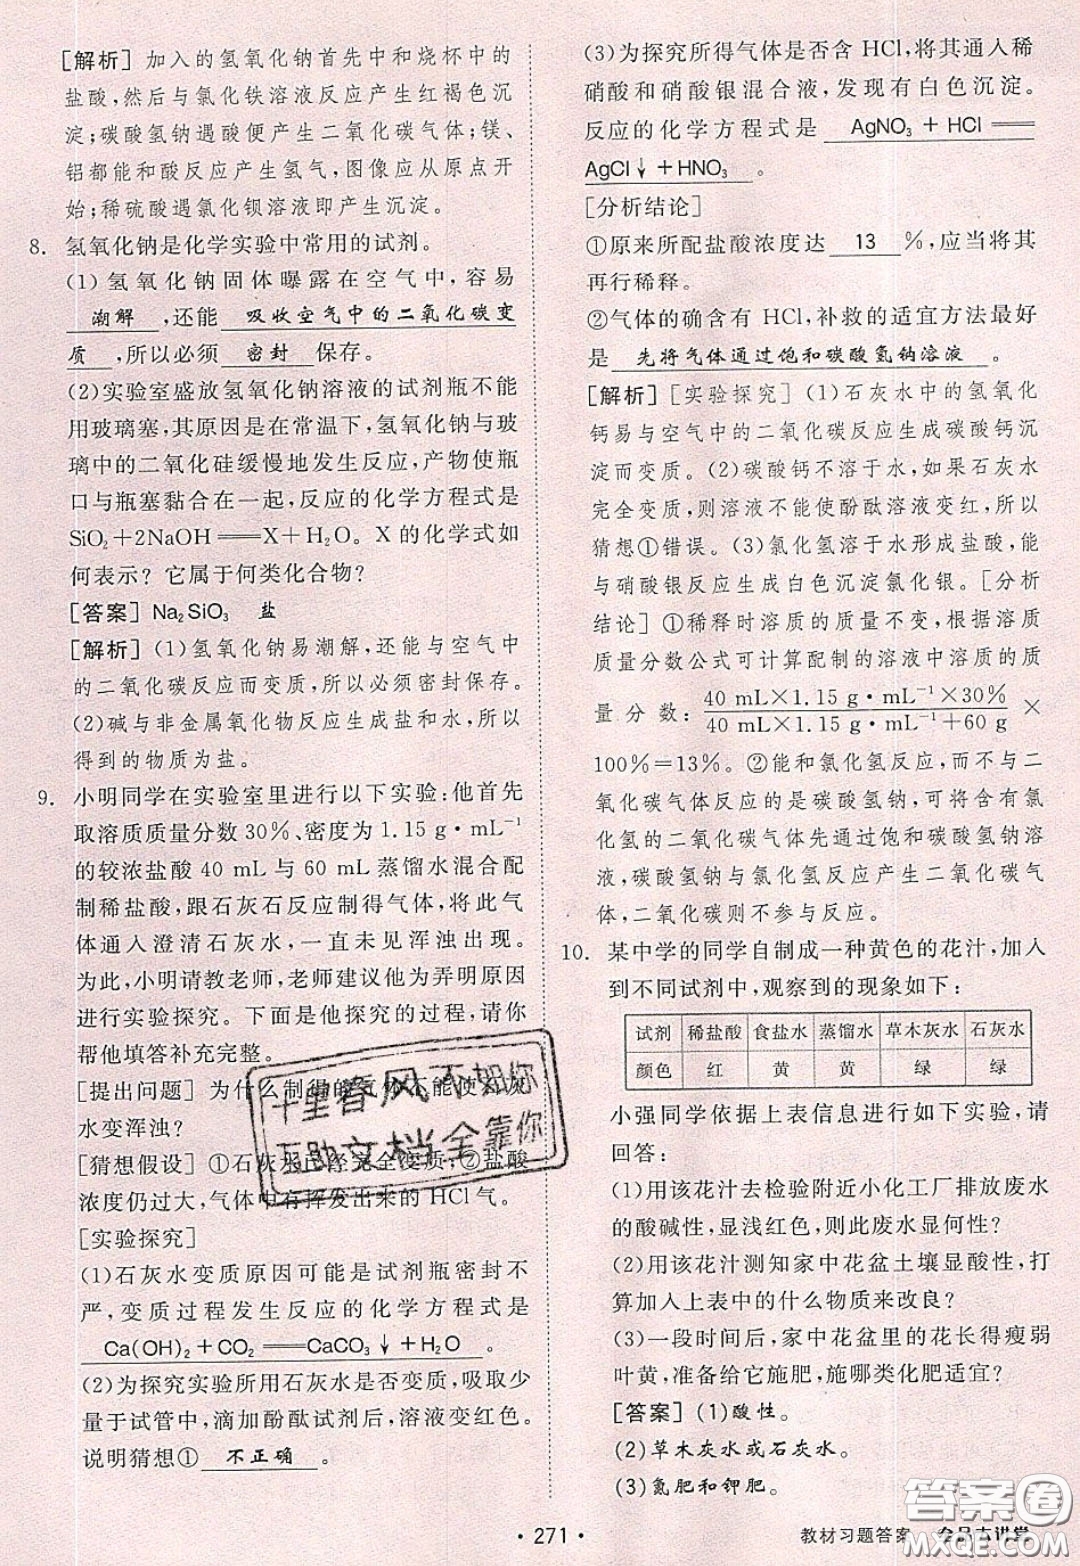 [解析] 加入的氢氧化钠首先中和烧杯中的
盐酸,然后与氯化铁溶液反应产生红褐色沉
淀;碳酸氢钠遇酸便产生二氧化碳气体;镁、
铝都能和酸反应产生氢气,图像应从原点开
始;稀硫酸遇氯化钡溶液即产生沉淀。
8. 氢氧化钠是化学实验中常用的试剂。
(1)氢氧化钠固体曝露在空气中,容易
潮解,还能 吸收空气中的二氧化碳变
质,所以必须 密封 保存。
(2)实验室盛放氢氧化钠溶液的试剂瓶不能
用玻璃塞,其原因是在常温下,氢氧化钠与玻
璃中的二氧化硅缓慢地发生反应,产物使瓶
口与瓶塞黏合在一起,反应的化学方程式是
SiO₂+2NaOH══X+H₂O。X的化学式如
何表示?它属于何类化合物?
[答案] Na₂SiO₃ 盐
[解析] (1)氢氧化钠易潮解,还能与空气中
的二氧化碳反应而变质,所以必须密封保存。
(2)碱与非金属氧化物反应生成盐和水,所以
得到的物质为盐。
9. 小明同学在实验室里进行以下实验:他首先
取溶质质量分数30%、密度为1.15 g·mL⁻¹
的较浓盐酸40 mL与60 mL蒸馏水混合配
制稀盐酸,跟石灰石反应制得气体,将此气
体通入澄清石灰水,一直未见浑浊出现。
为此,小明请教老师,老师建议他为弄明原因
进行实验探究。下面是他探究的过程,请你
帮他填答补充完整。
[提出问题] 为什么制得的气体不能使石灰
水变浑浊?
[猜想假设] ①石灰水已经完全变质,②盐酸
浓度仍过大,气体中有挥发出来的HCl气。
[实验探究]
(1)石灰水变质原因可能是试剂瓶密封不
严,变质过程发生反应的化学方程式是
Ca(OH)₂+CO₂══CaCO₃↓+H₂O。
(2)为探究实验所用石灰水是否变质,吸取少
量于试管中,滴加酚酞试剂后,溶液变红色。
说明猜想① 不正确。
(3)为探究所得气体是否含HCl,将其通入稀
硝酸和硝酸银混合液,发现有白色沉淀。
反应的化学方程式是 AgNO₃+HCl══
AgCl↓+HNO₃。
[分析结论]
①原来所配盐酸浓度达 13 %,应当将其
再行稀释。
②气体的确含有HCl,补救的适宜方法最好
是 先将气体通过饱和碳酸氢钠溶液。
[解析] [实验探究] (1)石灰水中的氢氧化
钙易与空气中的二氧化碳反应生成碳酸钙沉
淀而变质。(2)碳酸钙不溶于水,如果石灰水
完全变质,则溶液不能使酚酞溶液变红,所以
猜想①错误。(3)氯化氢溶于水形成盐酸,能
与硝酸银反应生成白色沉淀氯化银。[分析
结论] ①稀释时溶质的质量不变,根据溶质
质量分数公式可计算配制的溶液中溶质的质
量分数:(40 mL×1.15 g·mL⁻¹×30%)/(40 mL×1.15 g·mL⁻¹+60 g)×
100%=13%。②能和氯化氢反应,而不与二
氧化碳气体反应的是碳酸氢钠,可将含有氯
化氢的二氧化碳气体先通过饱和碳酸氢钠溶
液,碳酸氢钠与氯化氢反应产生二氧化碳气
体,二氧化碳则不参与反应。
10. 某中学的同学自制成一种黄色的花汁,加入
到不同试剂中,观察到的现象如下:
试剂 稀盐酸 食盐水 蒸馏水 草木灰水 石灰水
颜色 红 黄 黄 绿 绿
小强同学依据上表信息进行如下实验,请
回答:
(1)用该花汁去检验附近小化工厂排放废水
的酸碱性,显浅红色,则此废水显何性?
(2)用该花汁测知家中花盆土壤显酸性,打
算加入上表中的什么物质来改良?
(3)一段时间后,家中花盆里的花长得瘦弱
叶黄,准备给它施肥,施哪类化肥适宜?
[答案] (1)酸性。
(2)草木灰水或石灰水。
(3)氮肥和钾肥。
十里春风不如你
互助文档全靠你
·271·
教材习题答案
答案圈
MXQE.COM